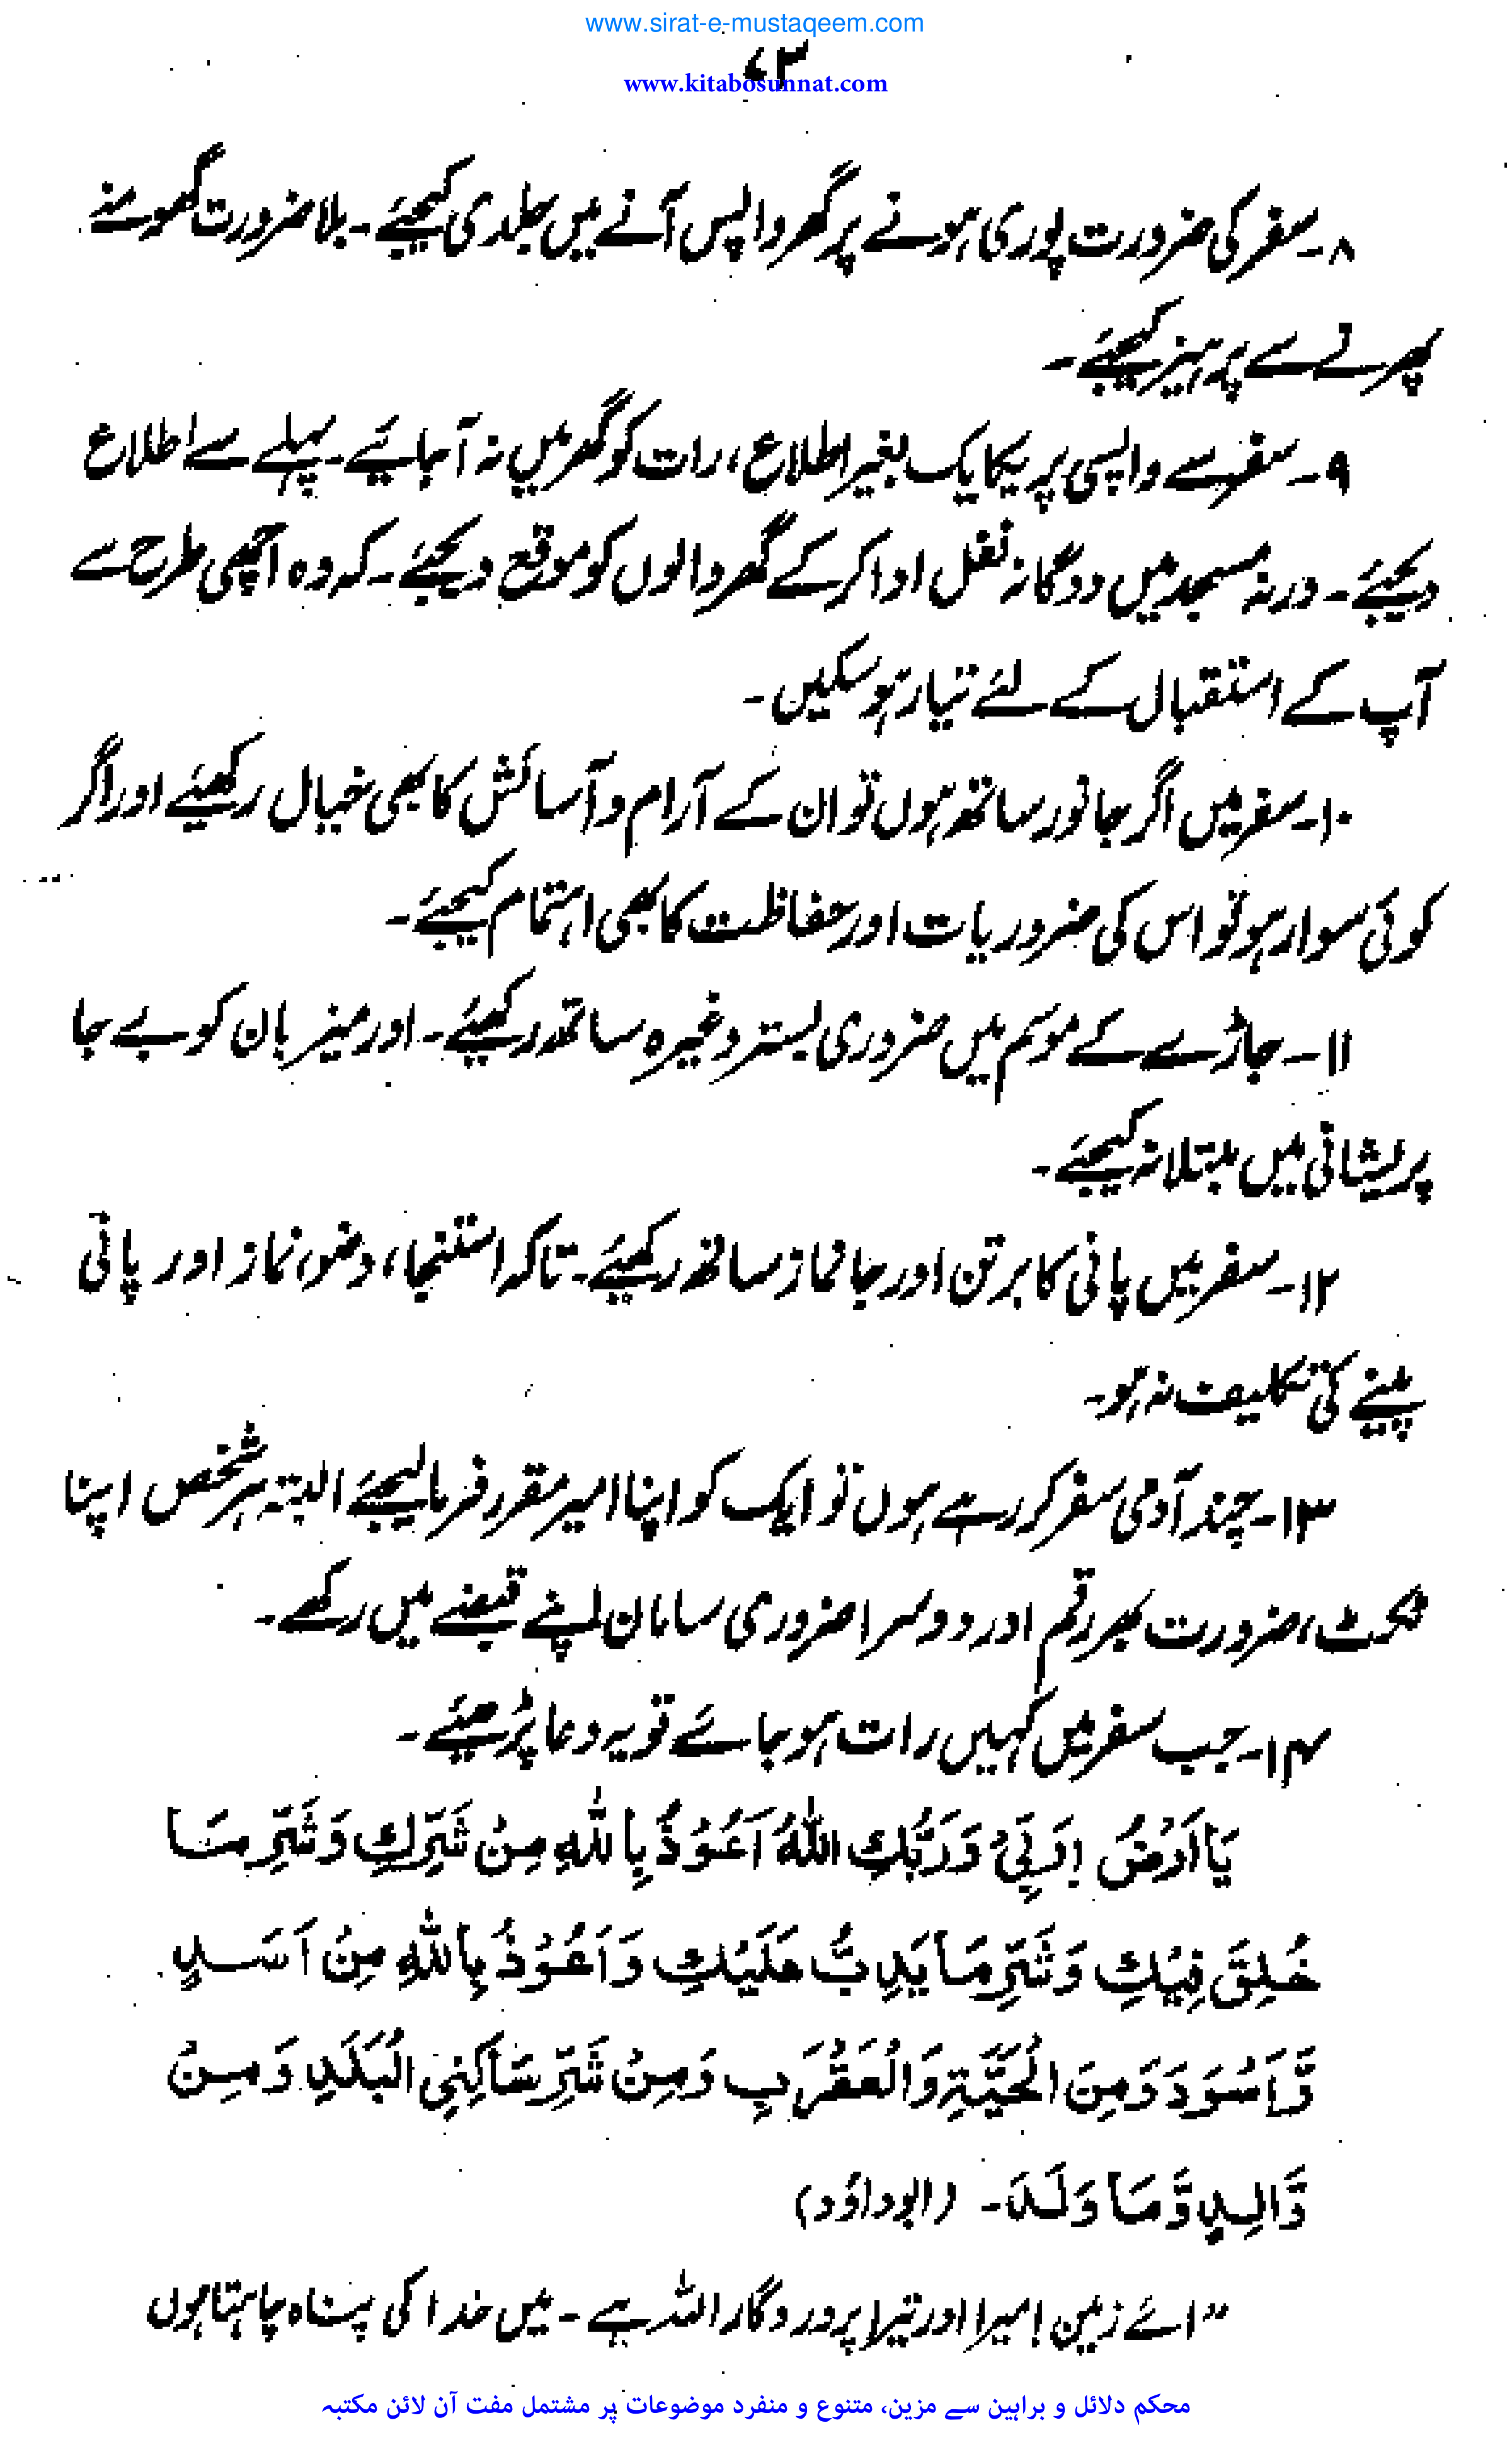 www.sirat-e-mustaqeem.com
www.kitabosunnat.com
۸۔ سفر کی ضرورت پوری ہونے پر گھر واپس آنے میں جلدی کیجئے۔ بلا ضرورت گھومنے
پھرنے سے پرہیز کیجئے۔
۹۔ سفر سے واپسی پر یکایک بغیر اطلاع، رات کو گھر میں نہ آ جائیے۔ پہلے سے اطلاع
دیجئے۔ ورنہ مسجد میں دوگانہ نفل ادا کر کے گھر والوں کو موقع دیجئے۔ کہ وہ اچھی طرح سے
آپ کے استقبال کے لئے تیار ہو سکیں۔
۱۰۔ سفر میں اگر جانور ساتھ ہوں تو ان کے آرام و آسائش کا بھی خیال رکھیئے اور اگر
کوئی سوار ہو تو اس کی ضروریات اور حفاظت کا بھی اہتمام کیجئے۔
۱۱۔ جاڑے کے موسم میں ضروری بستر وغیرہ ساتھ رکھیئے۔ اور میزبان کو بے جا
پریشانی میں مبتلا نہ کیجئے۔
۱۲۔ سفر میں پانی کا برتن اور جا نماز ساتھ رکھیئے۔ تاکہ استنجا، وضو، نماز اور پانی
پینے کی تکلیف نہ ہو۔
۱۳۔ چند آدمی سفر کر رہے ہوں تو ایک کو اپنا امیر مقرر فرما لیجئے البتہ ہر شخص اپنا
ٹکٹ، ضرورت بھر رقم اور دوسرا ضروری سامان اپنے قبضے میں رکھے۔
۱۴۔ جب سفر میں کہیں رات ہو جائے تو یہ دعا پڑھیئے۔
يَا اَرْضُ رَبِّیْ وَرَبُّكِ اللّٰهُ اَعُوْذُ بِاللّٰهِ مِنْ شَرِّكِ وَشَرِّ مَا
خُلِقَ فِيْكِ وَشَرِّ مَا يَدِبُّ عَلَيْكِ وَاَعُوْذُ بِاللّٰهِ مِنْ اَسَدٍ
وَّاَسْوَدَ وَمِنَ الْحَيَّةِ وَالْعَقْرَبِ وَمِنْ شَرِّ سَاكِنِي الْبَلَدِ وَمِنْ
وَّالِدٍ وَّمَا وَلَدَ۔ (ابوداؤد)
”اے زمین! میرا اور تیرا پروردگار اللہ ہے۔ میں خدا کی پناہ چاہتا ہوں
محکم دلائل و براہین سے مزین، متنوع و منفرد موضوعات پر مشتمل مفت آن لائن مکتبہ